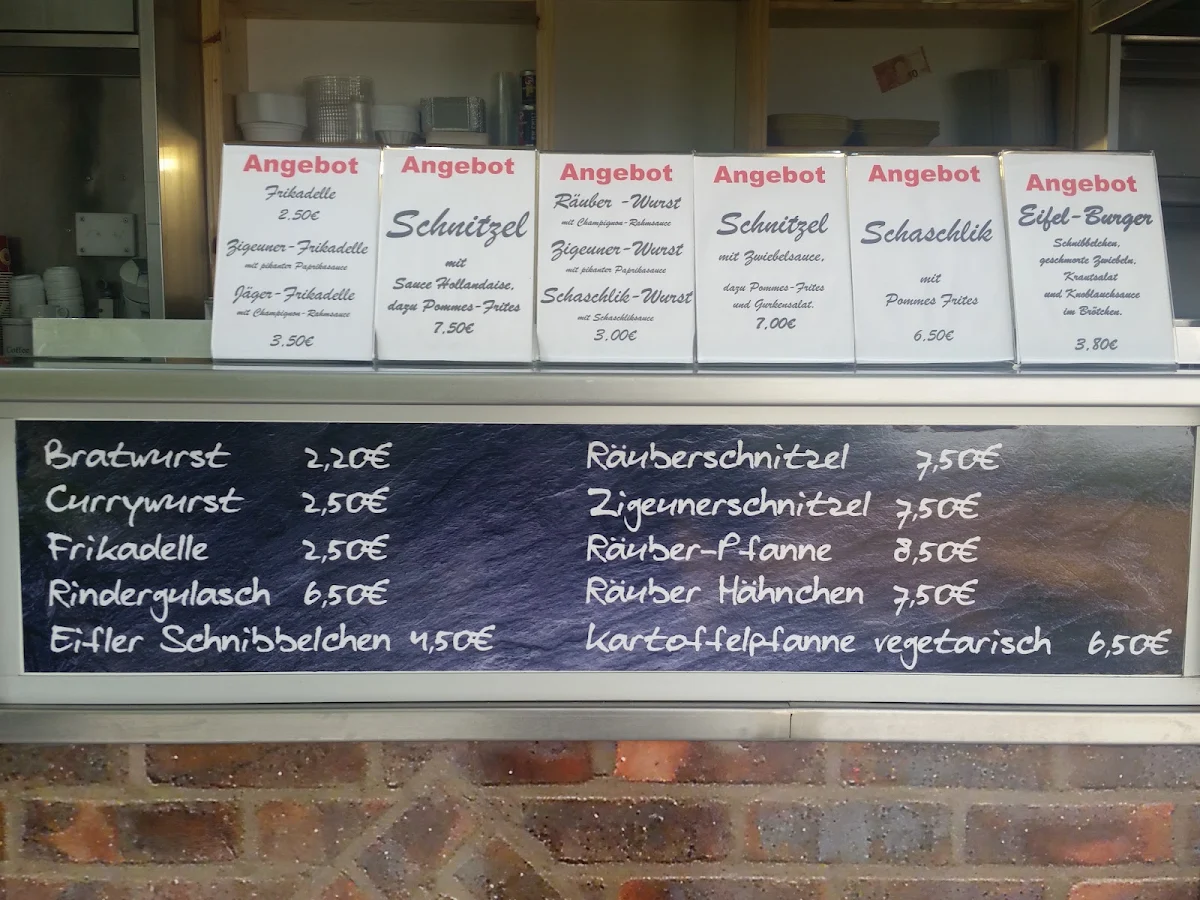 Angebot
Frikadelle
2.50€
Zigeuner-Frikadelle
mit pikanter Paprikasauce
Jäger-Frikadelle
mit Champignon-Rahmsauce
3.50€
Angebot
Schnitzel
mit
Sauce Hollandaise,
dazu Pommes-Frites
7,50€
Angebot
Räuber -Wurst
mit Champignon-Rahmsauce
Zigeuner-Wurst
mit pikanter Paprikasauce
Schaschlik-Wurst
mit Schaschliksauce
3.00€
Angebot
Schnitzel
mit Zwiebelsauce,
dazu Pommes-Frites
und Gurkensalat.
7,00€
Angebot
Schaschlik
mit
Pommes Frites
6,50€
Angebot
Eifel-Burger
Schnibbelchen,
geschmorte Zwiebeln,
Krautsalat
und Knoblauchsauce
im Brötchen.
3,80€
Bratwurst 2,20€
Currywurst 2,50€
Frikadelle 2,50€
Rindergulasch 6,50€
Eifler Schnibbelchen 4,50€
Räuberschnitzel 7,50€
Zigeunerschnitzel 7,50€
Räuber-Pfanne 8,50€
Räuber Hähnchen 7,50€
Kartoffelpfanne vegetarisch 6,50€